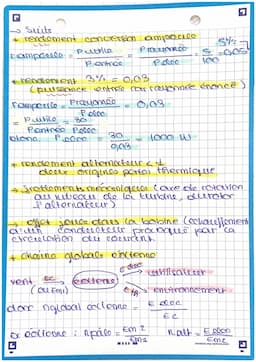 → Suite
* rendement conversion ampoule
Rampoule = P utile / P entrée = P rayonnée / P elec = 5 / 100 = 0,05
5%
* rendement 3% = 0,03
(puissance entrée par rayonnée énoncé)
Rampoule = P rayonnée / P elec = 0,03
= P utile / P entrée = 30 / P elec
donc P elec = 30 / 0,03 = 1000 W
* rendement alternateur < 1
deux origines pertes thermique
→ frottements mécaniques (axe de rotation
au niveau de la turbine, du rotor
d'alternateur)
→ effet joule dans la bobine (échauffement
d'un conducteur provoqué par la
circulation du courant.
* chaîne globale éolienne
vent Ec (ou Em1) éolienne E elec utilisateur
Eth environnement
donc η global éolienne = E elec / Ec
or éolienne : R pale = Em2 / Em1 R alt = E elec / Em2